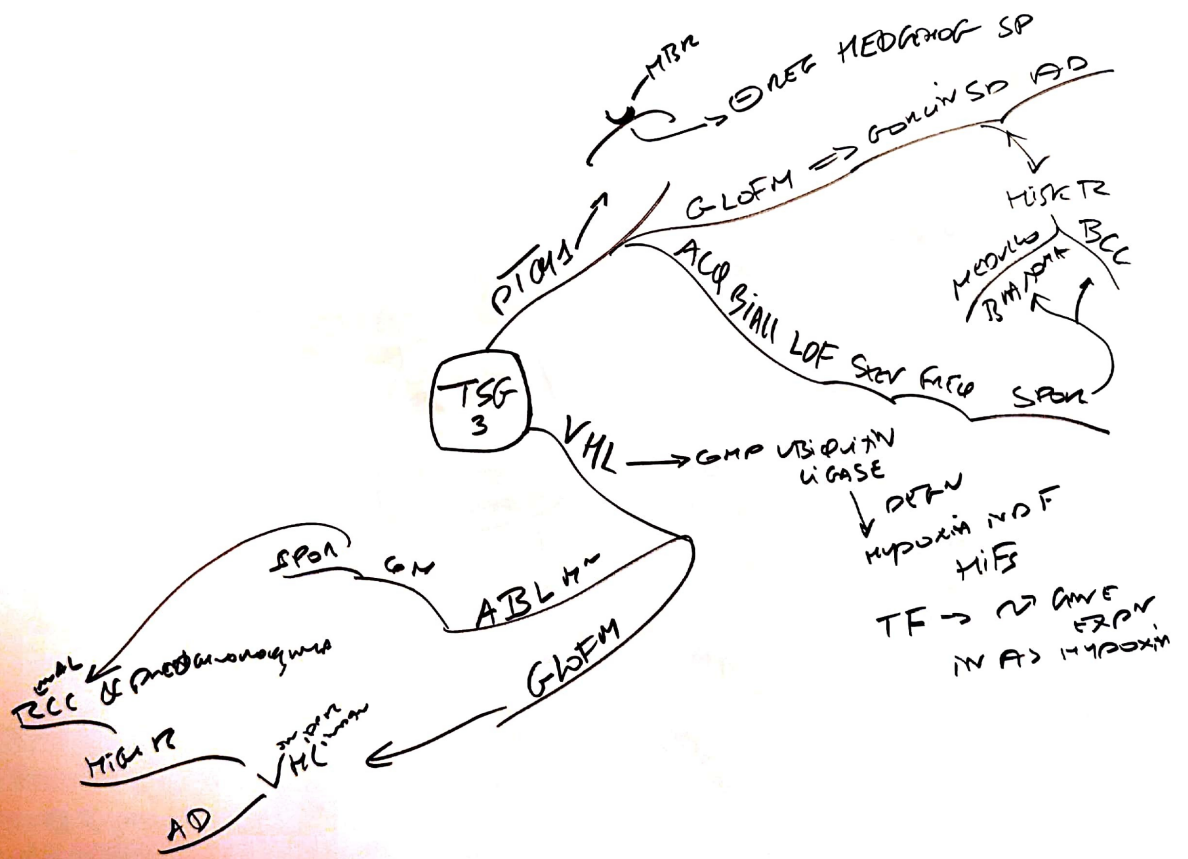 MBR
⊖ REG HEDGEHOG SP
PTCH1
GLOFM ⇒ GORLIN SD AD
HISK R
MEDULLO
BLASTOMA
BCC
ACQ BIALL LOF
SPOR
TSG
3
VHL → COMP UBIQUITIN
LIGASE
DEGN
HYPOXIA IND F
HIFS
TF → GENE
EXPN
IN AS HYPOXIA
ABL
GLOFM
SPOR
RCC & PHEOCHROMOCYTOMA
HIGH R
VHL
AD